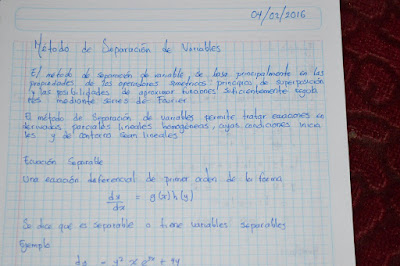 04/02/2016
Método de Separación de Variables
El método de separación de variable, se basa principalmente en las
propiedades de los operadores simetricos principios de superposición
y las posibilidades de aproximar funciones suficientemente
mediante series de Fourier.
El método de Separación de variables permite tratar ecuaciones en
derivadas parciales lineales homogéneas, cuyas condiciones inicia
les y de contorno sean lineales
Ecuación Separable
Una ecuación diferencial de primer orden de la forma
dy/dx = g(x)h(y)
Se dice que es separable o tiene variables separables
Ejemplo